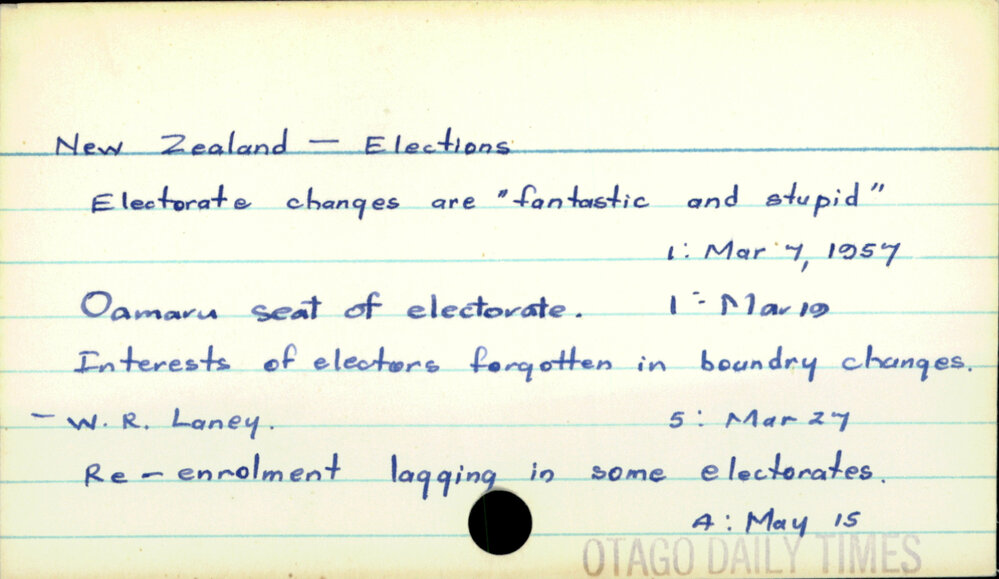 New Zealand — Elections
Electorate changes are "fantastic and stupid"
1: Mar 7, 1957
Oamaru seat of electorate. 1 - Mar 19
Interests of electors forgotten in boundry changes.
- W. R. Laney. 5: Mar 27
Re-enrolment lagging in some electorates.
4: May 15
OTAGO DAILY TIMES